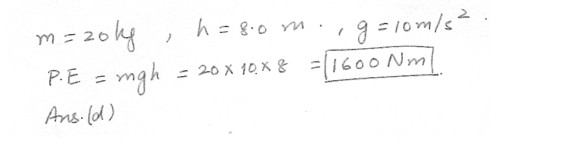 m = 20 kg , h = 8.0 m . , g = 10 m/s² .
P.E = mgh = 20 x 10 x 8 = 1600 Nm
Ans. (d)